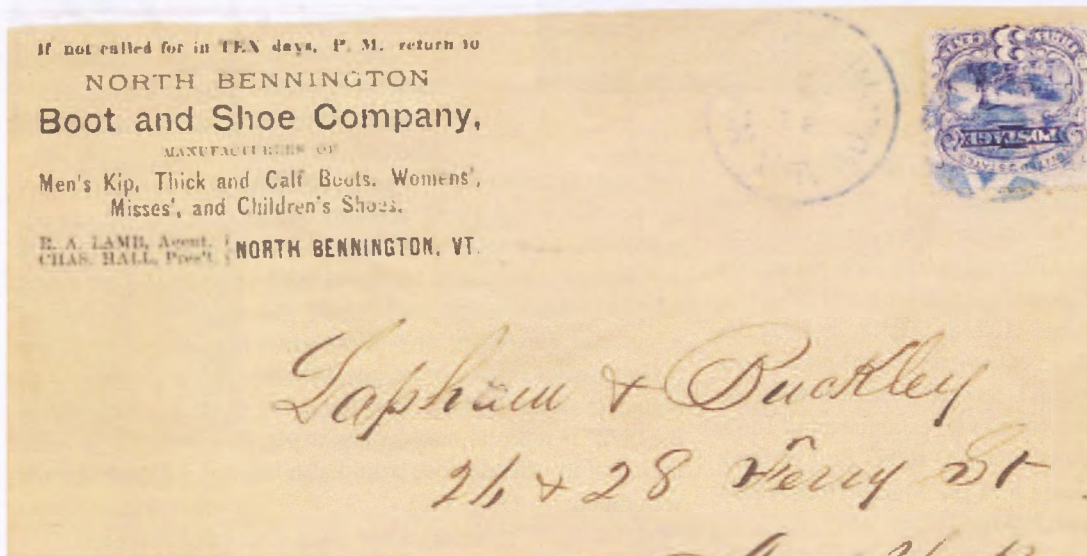 If not called for in TEN days, P. M. return to
NORTH BENNINGTON
Boot and Shoe Company,
MANUFACTURERS OF
Men's Kip, Thick and Calf Boots. Womens',
Misses', and Children's Shoes.
R. A. LAMB, Agent.
CHAS. HALL, Pres't.
NORTH BENNINGTON, VT.
POSTAGE
Lapham & Buckley
26 & 28 Ferry St